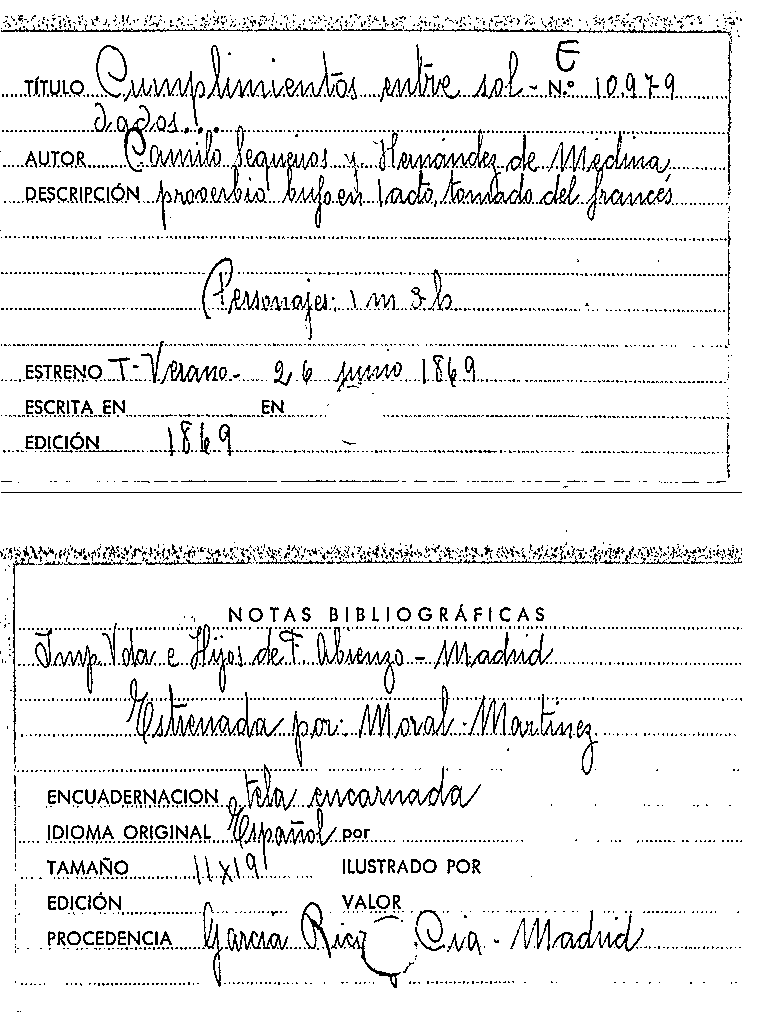 E
TÍTULO Cumplimientos entre sol- N.º 10.979
dados!...
AUTOR Camilo Sequeiros y Hernández de Medina
DESCRIPCIÓN proverbio bufo en 1 acto, tomado del francés
Personajes: 1 m 3 h
ESTRENO T-Verano- 26 junio 1869
ESCRITA EN EN
EDICIÓN 1869 -
NOTAS BIBLIOGRÁFICAS
Imp Vda e Hijos de F. Abienzo - Madrid
Estrenada por: Moral - Martínez
ENCUADERNACION tela encarnada
IDIOMA ORIGINAL Español por
TAMAÑO 11x19 ILUSTRADO POR
EDICIÓN VALOR
PROCEDENCIA García Rico Cia - Madrid